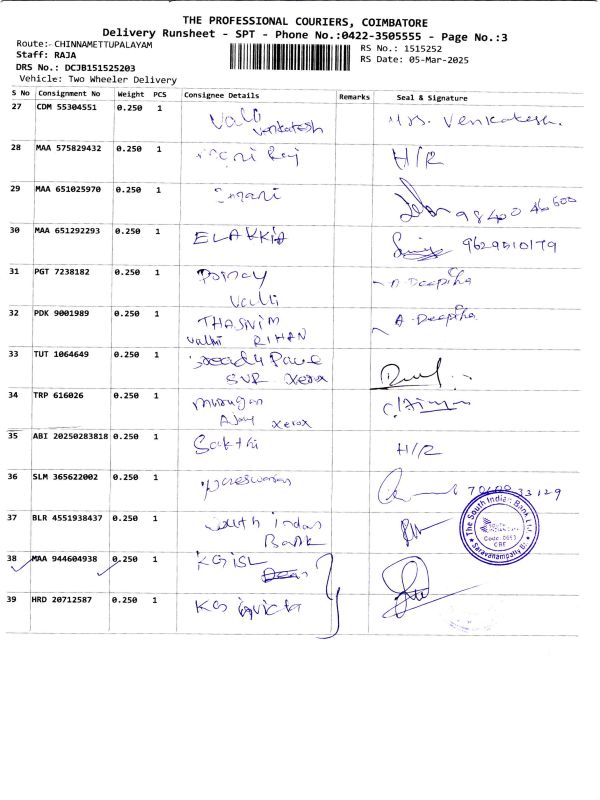 THE PROFESSIONAL COURIERS, COIMBATORE
Delivery Runsheet - SPT - Phone No.:0422-3505555 - Page No.:3
Route:- CHINNAMETTUPALAYAM
Staff: RAJA
DRS No.: DCJB151525203
Vehicle: Two Wheeler Delivery
RS No.: 1515252
RS Date: 05-Mar-2025
S No Consignment No Weight PCS Consignee Details Remarks Seal & Signature
27 CDM 55304551 0.250 1 Valli Mrs. Venkatesh.
Venkatesh
28 MAA 575829432 0.250 1 Raj H/R
29 MAA 651025970 0.250 1
30 MAA 651292293 0.250 1 ELAKKIA 9629510179
31 PGT 7238182 0.250 1 Deepika
Valli
32 PDK 9001989 0.250 1 THASNIM A. Deepika
Valli RIHAN
33 TUT 1064649 0.250 1
SVR Xerox
34 TRP 616026 0.250 1 Murugan
Ajay Xerox
35 ABI 20250283818 0.250 1 Sakthi H/R
36 SLM 365622002 0.250 1
37 BLR 4551938437 0.250 1 South Indian
Bank
The South Indian Bank Ltd.
Code: 0653
CBE
Saravanampatty
38 MAA 944604938 0.250 1 KGISL
39 HRD 20712587 0.250 1 KG